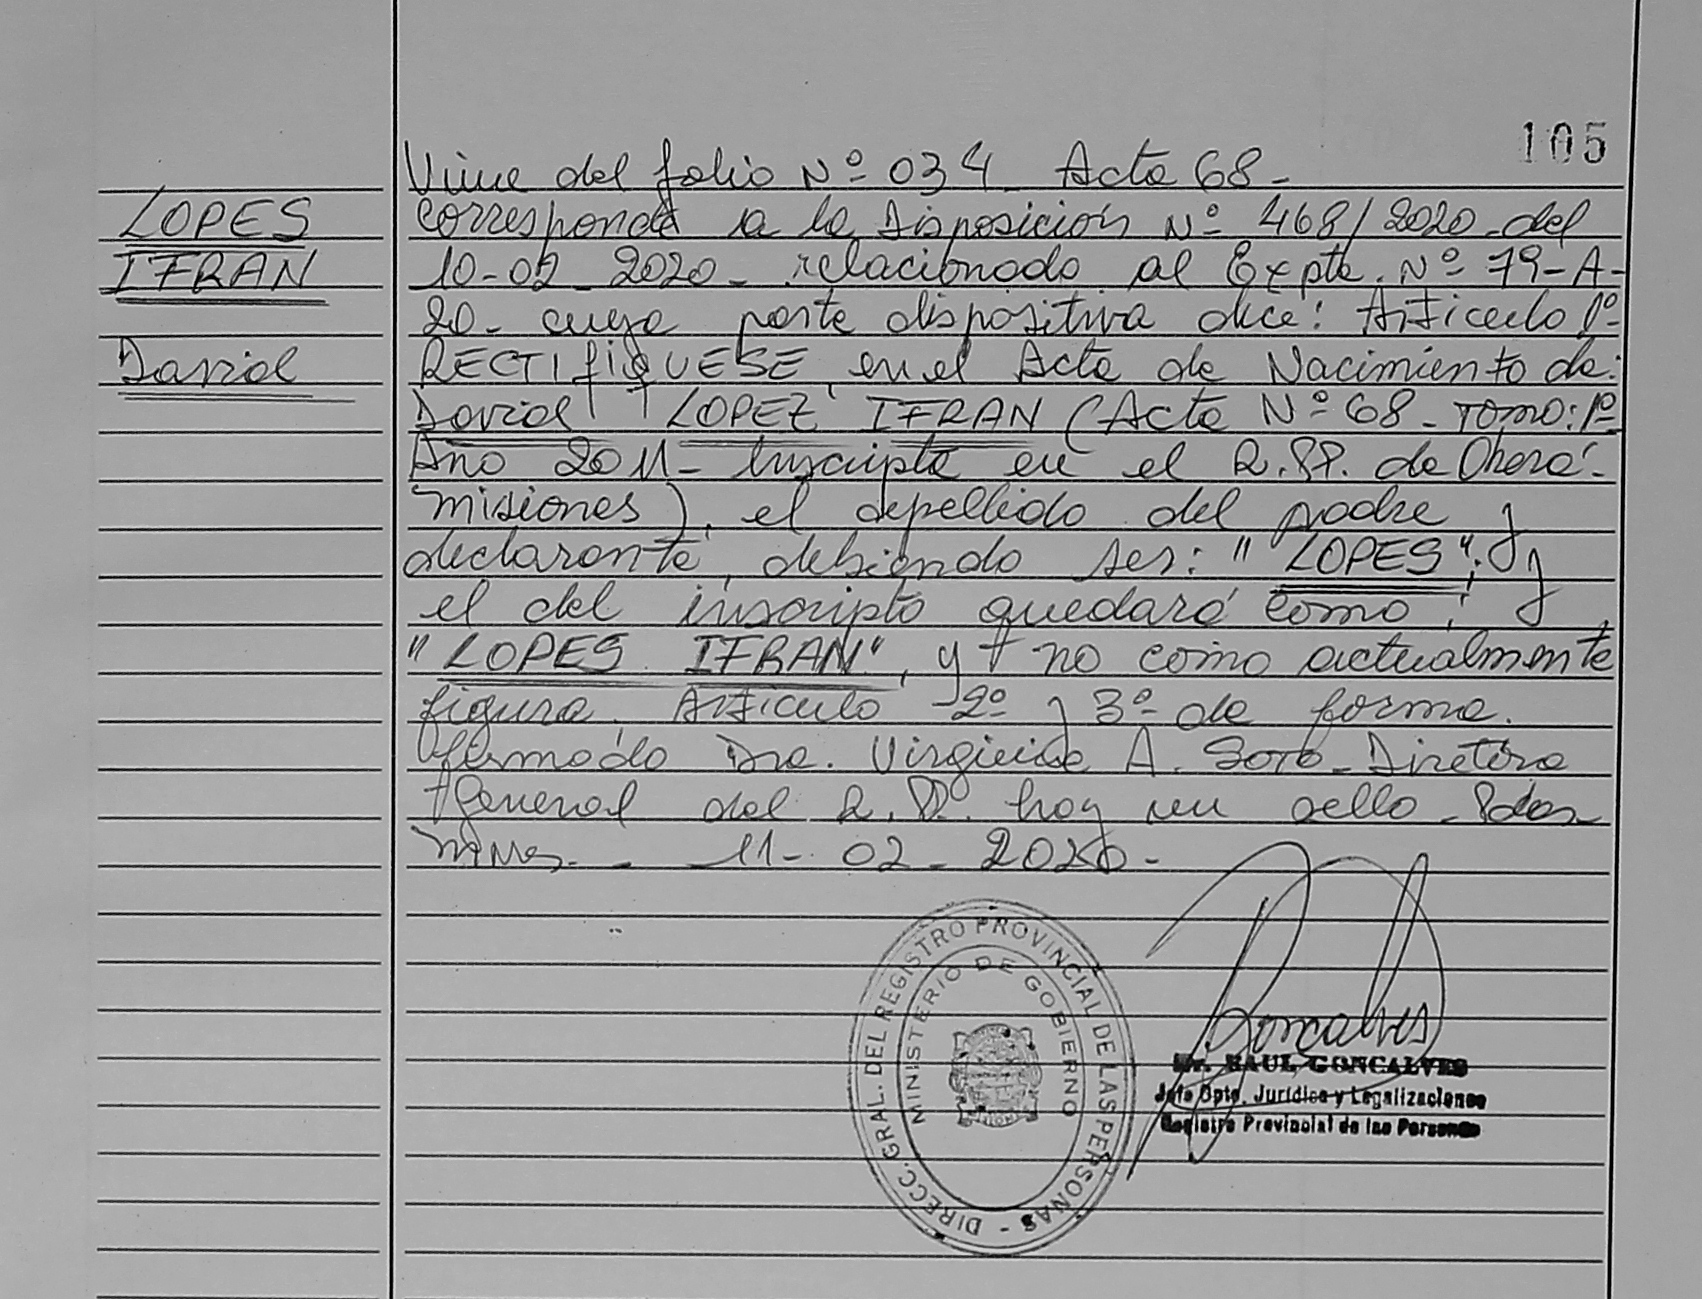 105
LOPES
IFRAN
David
Viene del folio Nº 034 - Acta 68 -
Corresponde a la Disposición Nº 468/2020 - del
10-02-2020 - relacionado al Expte. Nº 79-A-
20 - cuya parte dispositiva dice: Artículo 1º
RECTIFIQUESE en el Acta de Nacimiento de:
David LOPEZ IFRAN (Acta Nº 68 - Tomo: 1º
Año 2011 - Inscripta en el R.PP. de Oberá -
Misiones), el apellido del padre y
declarante, debiendo ser: "LOPES"; y
el del inscripto quedará como:
"LOPES IFRAN", y no como actualmente
figura. Artículo 2º y 3º de forma.
Firmado Dra. Virginia A. Soto - Diretora
General del R.P. hay un sello - Pdas
Mnes. - 11-02-2020 -
DIRECC. GRAL. DEL REGISTRO PROVINCIAL DE LAS PERSONAS -
MINISTERIO DE GOBIERNO
Goncalves
Dr. RAUL GONCALVES
Jefe Dpto. Jurídico y Legalizaciones
Registro Provincial de las Personas